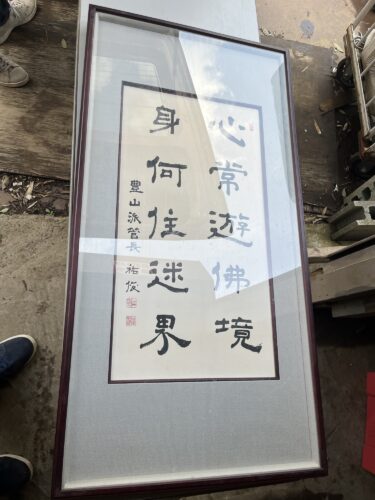 心常遊佛境
身何住迷界
豐山派管長 祐俊